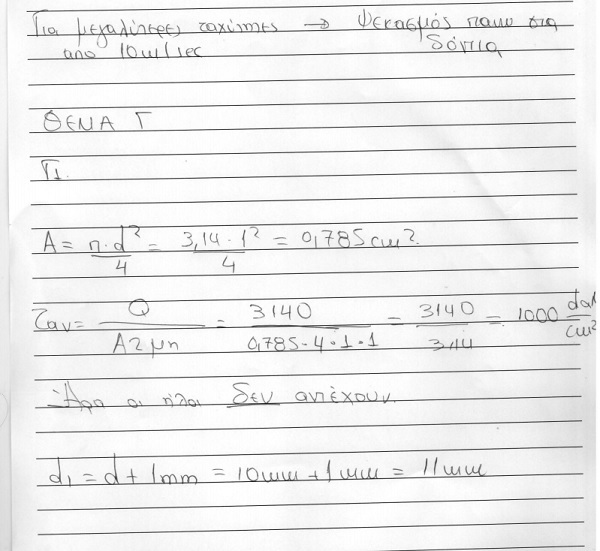 Για μεγαλύτερες ταχύτητες → Ψεκασμός πανω στα
απο 10m/sec δόντια
ΘΕΜΑ Γ
Γ1.
A = π·d²/4 = 3,14·1²/4 = 0,785cm².
τav = Q/Azμn = 3140/0,785·4·1·1 = 3140/3,14 = 1000 daN/cm²
Άρα οι ήλοι δεν αντέχουν.
d1 = d + 1mm = 10mm + 1mm = 11mm